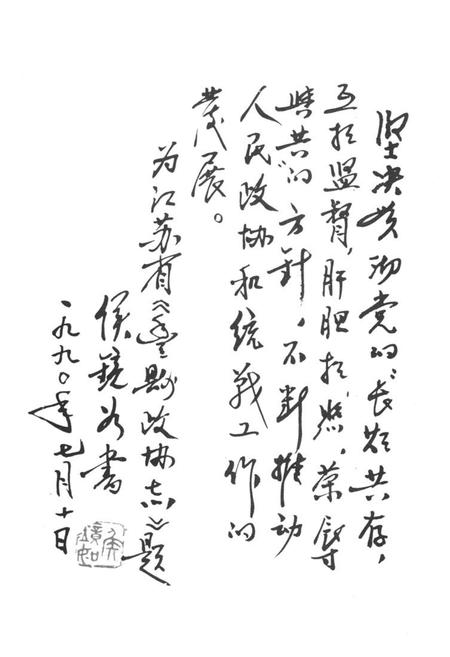 坚决贯彻党的“长期共存,
互相监督,肝胆相照,荣辱
與共”的方针,不断推动
人民政协和统战工作的
發展。
为江苏省《豐縣政协志》题
侯镜如書
一九九〇年七月十日
侯镜如